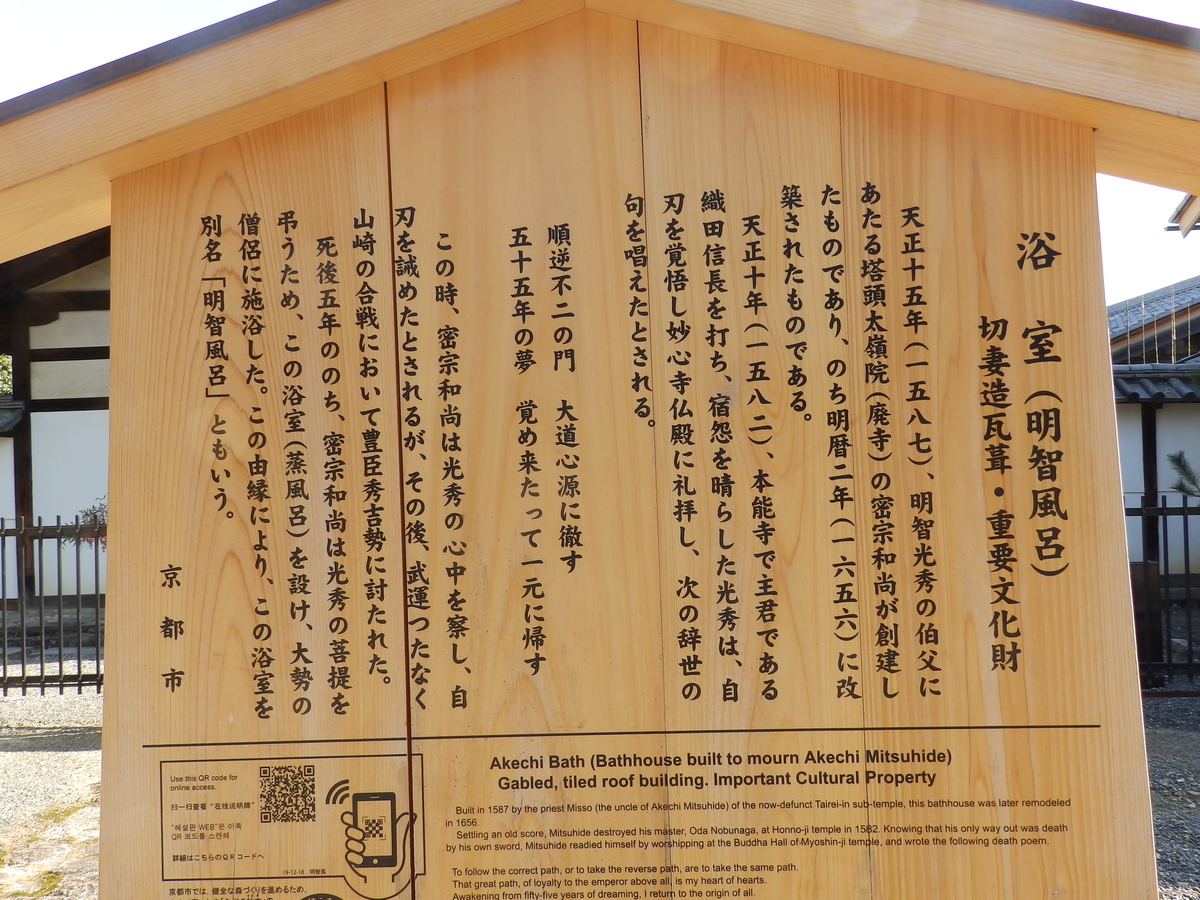 浴　室（明智風呂）
切妻造瓦葺・重要文化財
天正十五年（一五八七）、明智光秀の伯父に
あたる塔頭太嶺院（廃寺）の密宗和尚が創建し
たものであり、のち明暦二年（一六五六）に改
築されたものである。
天正十年（一五八二）、本能寺で主君である
織田信長を打ち、宿怨を晴らした光秀は、自
刃を覚悟し妙心寺仏殿に礼拝し、次の辞世の
句を唱えたとされる。
順逆不二の門　大道心源に徹す
五十五年の夢　覚め来たって一元に帰す
この時、密宗和尚は光秀の心中を察し、自
刃を誡めたとされるが、その後、武運つたなく
山崎の合戦において豊臣秀吉勢に討たれた。
死後五年ののち、密宗和尚は光秀の菩提を
弔うため、この浴室（蒸風呂）を設け、大勢の
僧侶に施浴した。この由縁により、この浴室を
別名「明智風呂」ともいう。
京都市
Akechi Bath (Bathhouse built to mourn Akechi Mitsuhide)
Gabled, tiled roof building. Important Cultural Property
Built in 1587 by the priest Misso (the uncle of Akechi Mitsuhide) of the now-defunct Tairei-in sub-temple, this bathhouse was later remodeled
in 1656.
Settling an old score, Mitsuhide destroyed his master, Oda Nobunaga, at Honno-ji temple in 1582. Knowing that his only way out was death
by his own sword, Mitsuhide readied himself by worshipping at the Buddha Hall of Myoshin-ji temple, and wrote the following death poem.
To follow the correct path, or to take the reverse path, are to take the same path.
That great path, of loyalty to the emperor above all, is my heart of hearts.
Awakening from fifty-five years of dreaming, I return to the origin of all.
Use this QR code for
online access.
扫一扫查看 "在线说明牌"
"해설판 WEB"은 이쪽
QR 코드를 스캔해
詳細はこちらのQRコードへ
19-12-18　明智風
京都市では、健全な森づくりを進めるため、